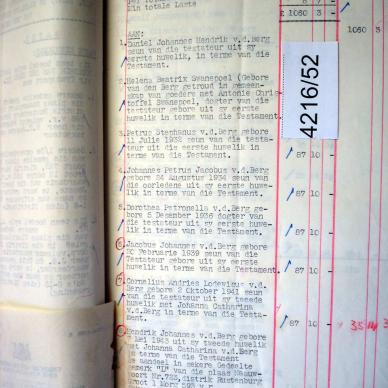 Min totale Laste
£ 1060 3 -
1060 3
AAN:
1. Daniel Johannes Hendrik v.d.Berg
seun van die testateur uit sy
eerste huwelik, in terme van die
Testament.
2. Helena Beatrix Swanepoel (Gebore
van den Berg getroud in gemeen-
skap van goedere met Antonie Chris
toffel Swanepoel, dogter van die
testateur gebore uit sy eerste
huwelik in terme van die Testament.
3. Petrus Stephanus v.d.Berg gebore
11 Julie 1932 seun van die testa-
teur uit die eerste huwelik in
terme van die Testament.
87 10 -
4. Johannes Petrus Jacobus v.d.Berg
gebore 24 Augustus 1934 seun van
die oorledene uit sy eerste huwe-
lik in terme van die Testament.
87 10 -
5. Dorothea Petronella v.d.Berg ge-
bore 5 Desember 1936 dogter van
die testateur uit sy eerste huwe-
lik in terme van die Testament.
87 10 -
6. Jacobus Johannes v.d.Berg gebore
20 Februarie 1939 seun van die
Testateur gebore uit sy eerste
huwelik in terme van die Testament.
87 10 -
7. Cornelius Andries Lodevicus v.d.
Berg gebore 2 Oktober 1941 seun
van die testateur uit sy tweede
huwelik met Johanna Catharina
v.d.Berg in terme van die Testa-
ment.
87 10 -
Hendrik Johannes v.d.Berg gebore
7 Mei 1943 uit sy tweede huwelik
met Johanna Catharina v.d.Berg
in terme van die Testament
aandeel in sekere Gedeelte
gemerk "D" van die plaas Blauw-
No.723, distrik Rustenburg
Groot
4216/52